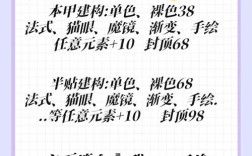 本甲建构:单色、裸色38
法式、猫眼、魔镜、渐变、手绘
任意元素+10 封顶68
半贴建构:单色、裸色68
法式、猫眼、魔镜、渐变、手绘.
..等任意元素+10 封顶98